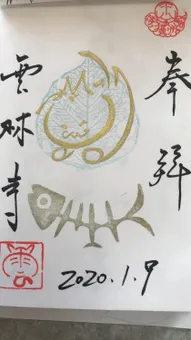 奉拝
雲林寺
2020.1.9